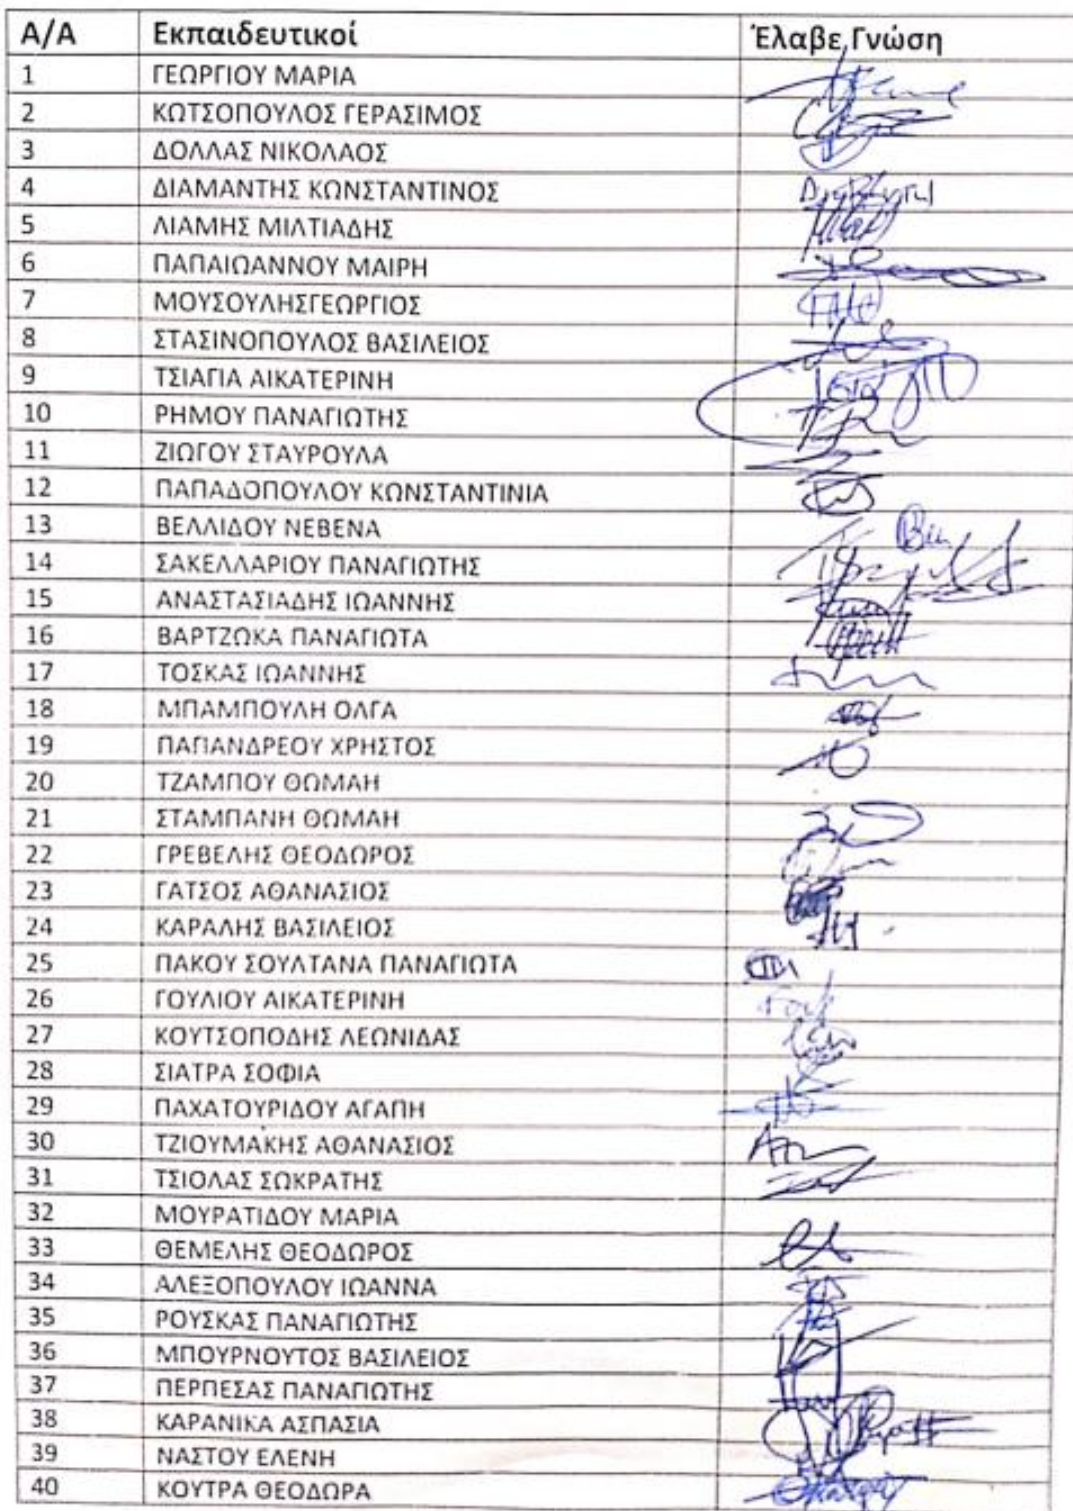 Α/Α Εκπαιδευτικοί Έλαβε Γνώση
1 ΓΕΩΡΓΙΟΥ ΜΑΡΙΑ
2 ΚΩΤΣΟΠΟΥΛΟΣ ΓΕΡΑΣΙΜΟΣ
3 ΔΟΛΛΑΣ ΝΙΚΟΛΑΟΣ
4 ΔΙΑΜΑΝΤΗΣ ΚΩΝΣΤΑΝΤΙΝΟΣ
5 ΛΙΑΜΗΣ ΜΙΛΤΙΑΔΗΣ
6 ΠΑΠΑΙΩΑΝΝΟΥ ΜΑΙΡΗ
7 ΜΟΥΣΟΥΛΗΣΓΕΩΡΓΙΟΣ
8 ΣΤΑΣΙΝΟΠΟΥΛΟΣ ΒΑΣΙΛΕΙΟΣ
9 ΤΣΙΑΓΙΑ ΑΙΚΑΤΕΡΙΝΗ
10 ΡΗΜΟΥ ΠΑΝΑΓΙΩΤΗΣ
11 ΖΙΩΓΟΥ ΣΤΑΥΡΟΥΛΑ
12 ΠΑΠΑΔΟΠΟΥΛΟΥ ΚΩΝΣΤΑΝΤΙΝΙΑ
13 ΒΕΛΛΙΔΟΥ ΝΕΒΕΝΑ
14 ΣΑΚΕΛΛΑΡΙΟΥ ΠΑΝΑΓΙΩΤΗΣ
15 ΑΝΑΣΤΑΣΙΑΔΗΣ ΙΩΑΝΝΗΣ
16 ΒΑΡΤΖΩΚΑ ΠΑΝΑΓΙΩΤΑ
17 ΤΟΣΚΑΣ ΙΩΑΝΝΗΣ
18 ΜΠΑΜΠΟΥΛΗ ΟΛΓΑ
19 ΠΑΠΑΝΔΡΕΟΥ ΧΡΗΣΤΟΣ
20 ΤΖΑΜΠΟΥ ΘΩΜΑΗ
21 ΣΤΑΜΠΑΝΗ ΘΩΜΑΗ
22 ΓΡΕΒΕΛΗΣ ΘΕΟΔΩΡΟΣ
23 ΓΑΤΣΟΣ ΑΘΑΝΑΣΙΟΣ
24 ΚΑΡΑΛΗΣ ΒΑΣΙΛΕΙΟΣ
25 ΠΑΚΟΥ ΣΟΥΛΤΑΝΑ ΠΑΝΑΓΙΩΤΑ
26 ΓΟΥΛΙΟΥ ΑΙΚΑΤΕΡΙΝΗ
27 ΚΟΥΤΣΟΠΟΔΗΣ ΛΕΩΝΙΔΑΣ
28 ΣΙΑΤΡΑ ΣΟΦΙΑ
29 ΠΑΧΑΤΟΥΡΙΔΟΥ ΑΓΑΠΗ
30 ΤΖΙΟΥΜΑΚΗΣ ΑΘΑΝΑΣΙΟΣ
31 ΤΣΙΟΛΑΣ ΣΩΚΡΑΤΗΣ
32 ΜΟΥΡΑΤΙΔΟΥ ΜΑΡΙΑ
33 ΘΕΜΕΛΗΣ ΘΕΟΔΩΡΟΣ
34 ΑΛΕΞΟΠΟΥΛΟΥ ΙΩΑΝΝΑ
35 ΡΟΥΣΚΑΣ ΠΑΝΑΓΙΩΤΗΣ
36 ΜΠΟΥΡΝΟΥΤΟΣ ΒΑΣΙΛΕΙΟΣ
37 ΠΕΡΠΕΣΑΣ ΠΑΝΑΓΙΩΤΗΣ
38 ΚΑΡΑΝΙΚΑ ΑΣΠΑΣΙΑ
39 ΝΑΣΤΟΥ ΕΛΕΝΗ
40 ΚΟΥΤΡΑ ΘΕΟΔΩΡΑ